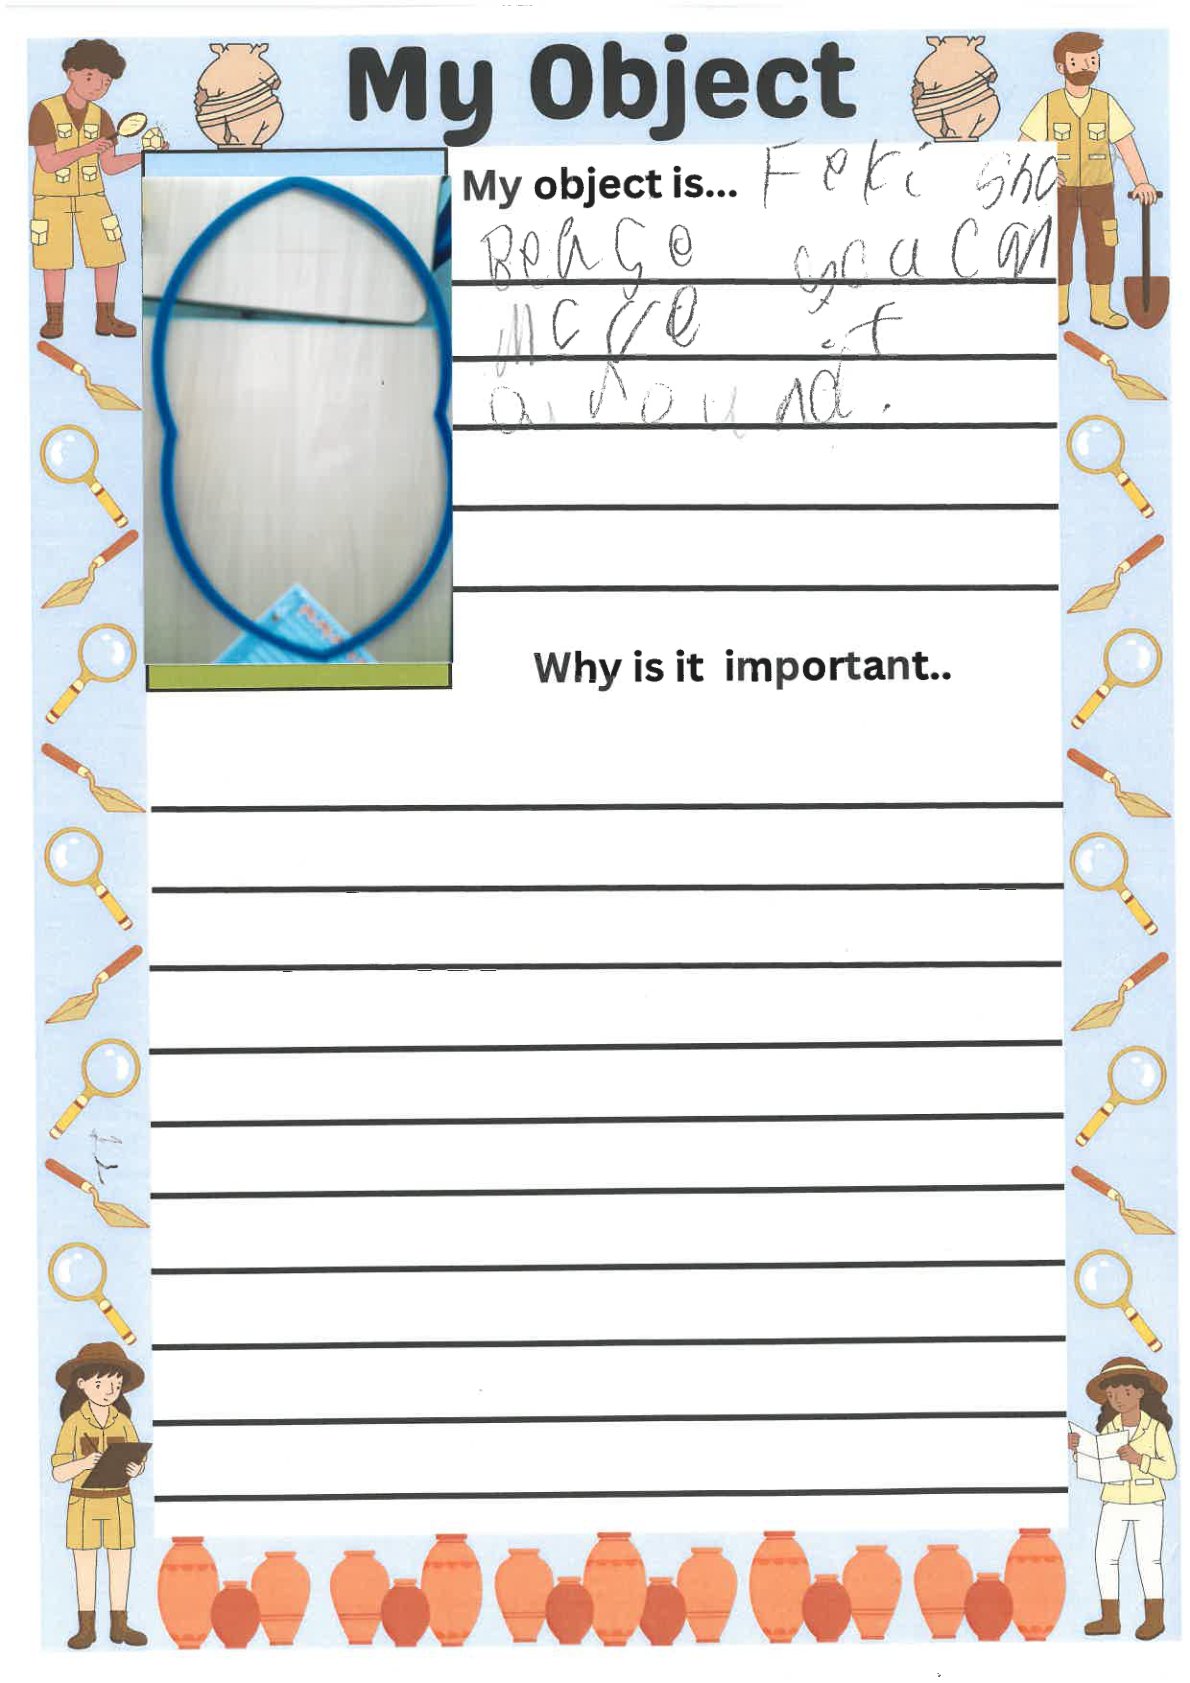 My Object
My object is... Feki sha
Beause you can
move it
around.
Why is it important..